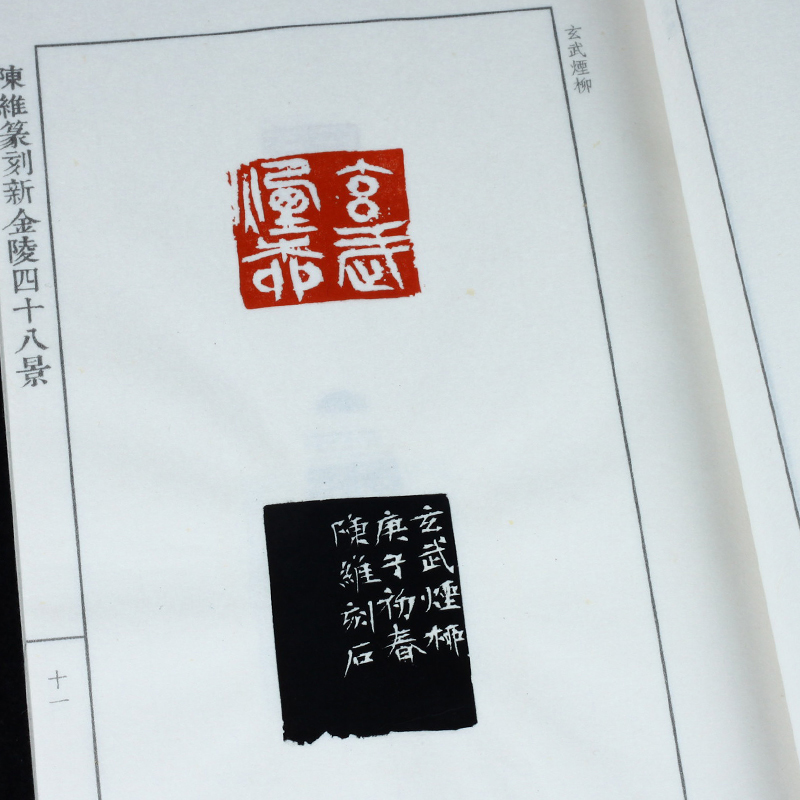 玄武煙柳
玄武
煙柳
玄武煙柳
庚子初春
陳維刻石
陳維篆刻新金陵四十八景
十一